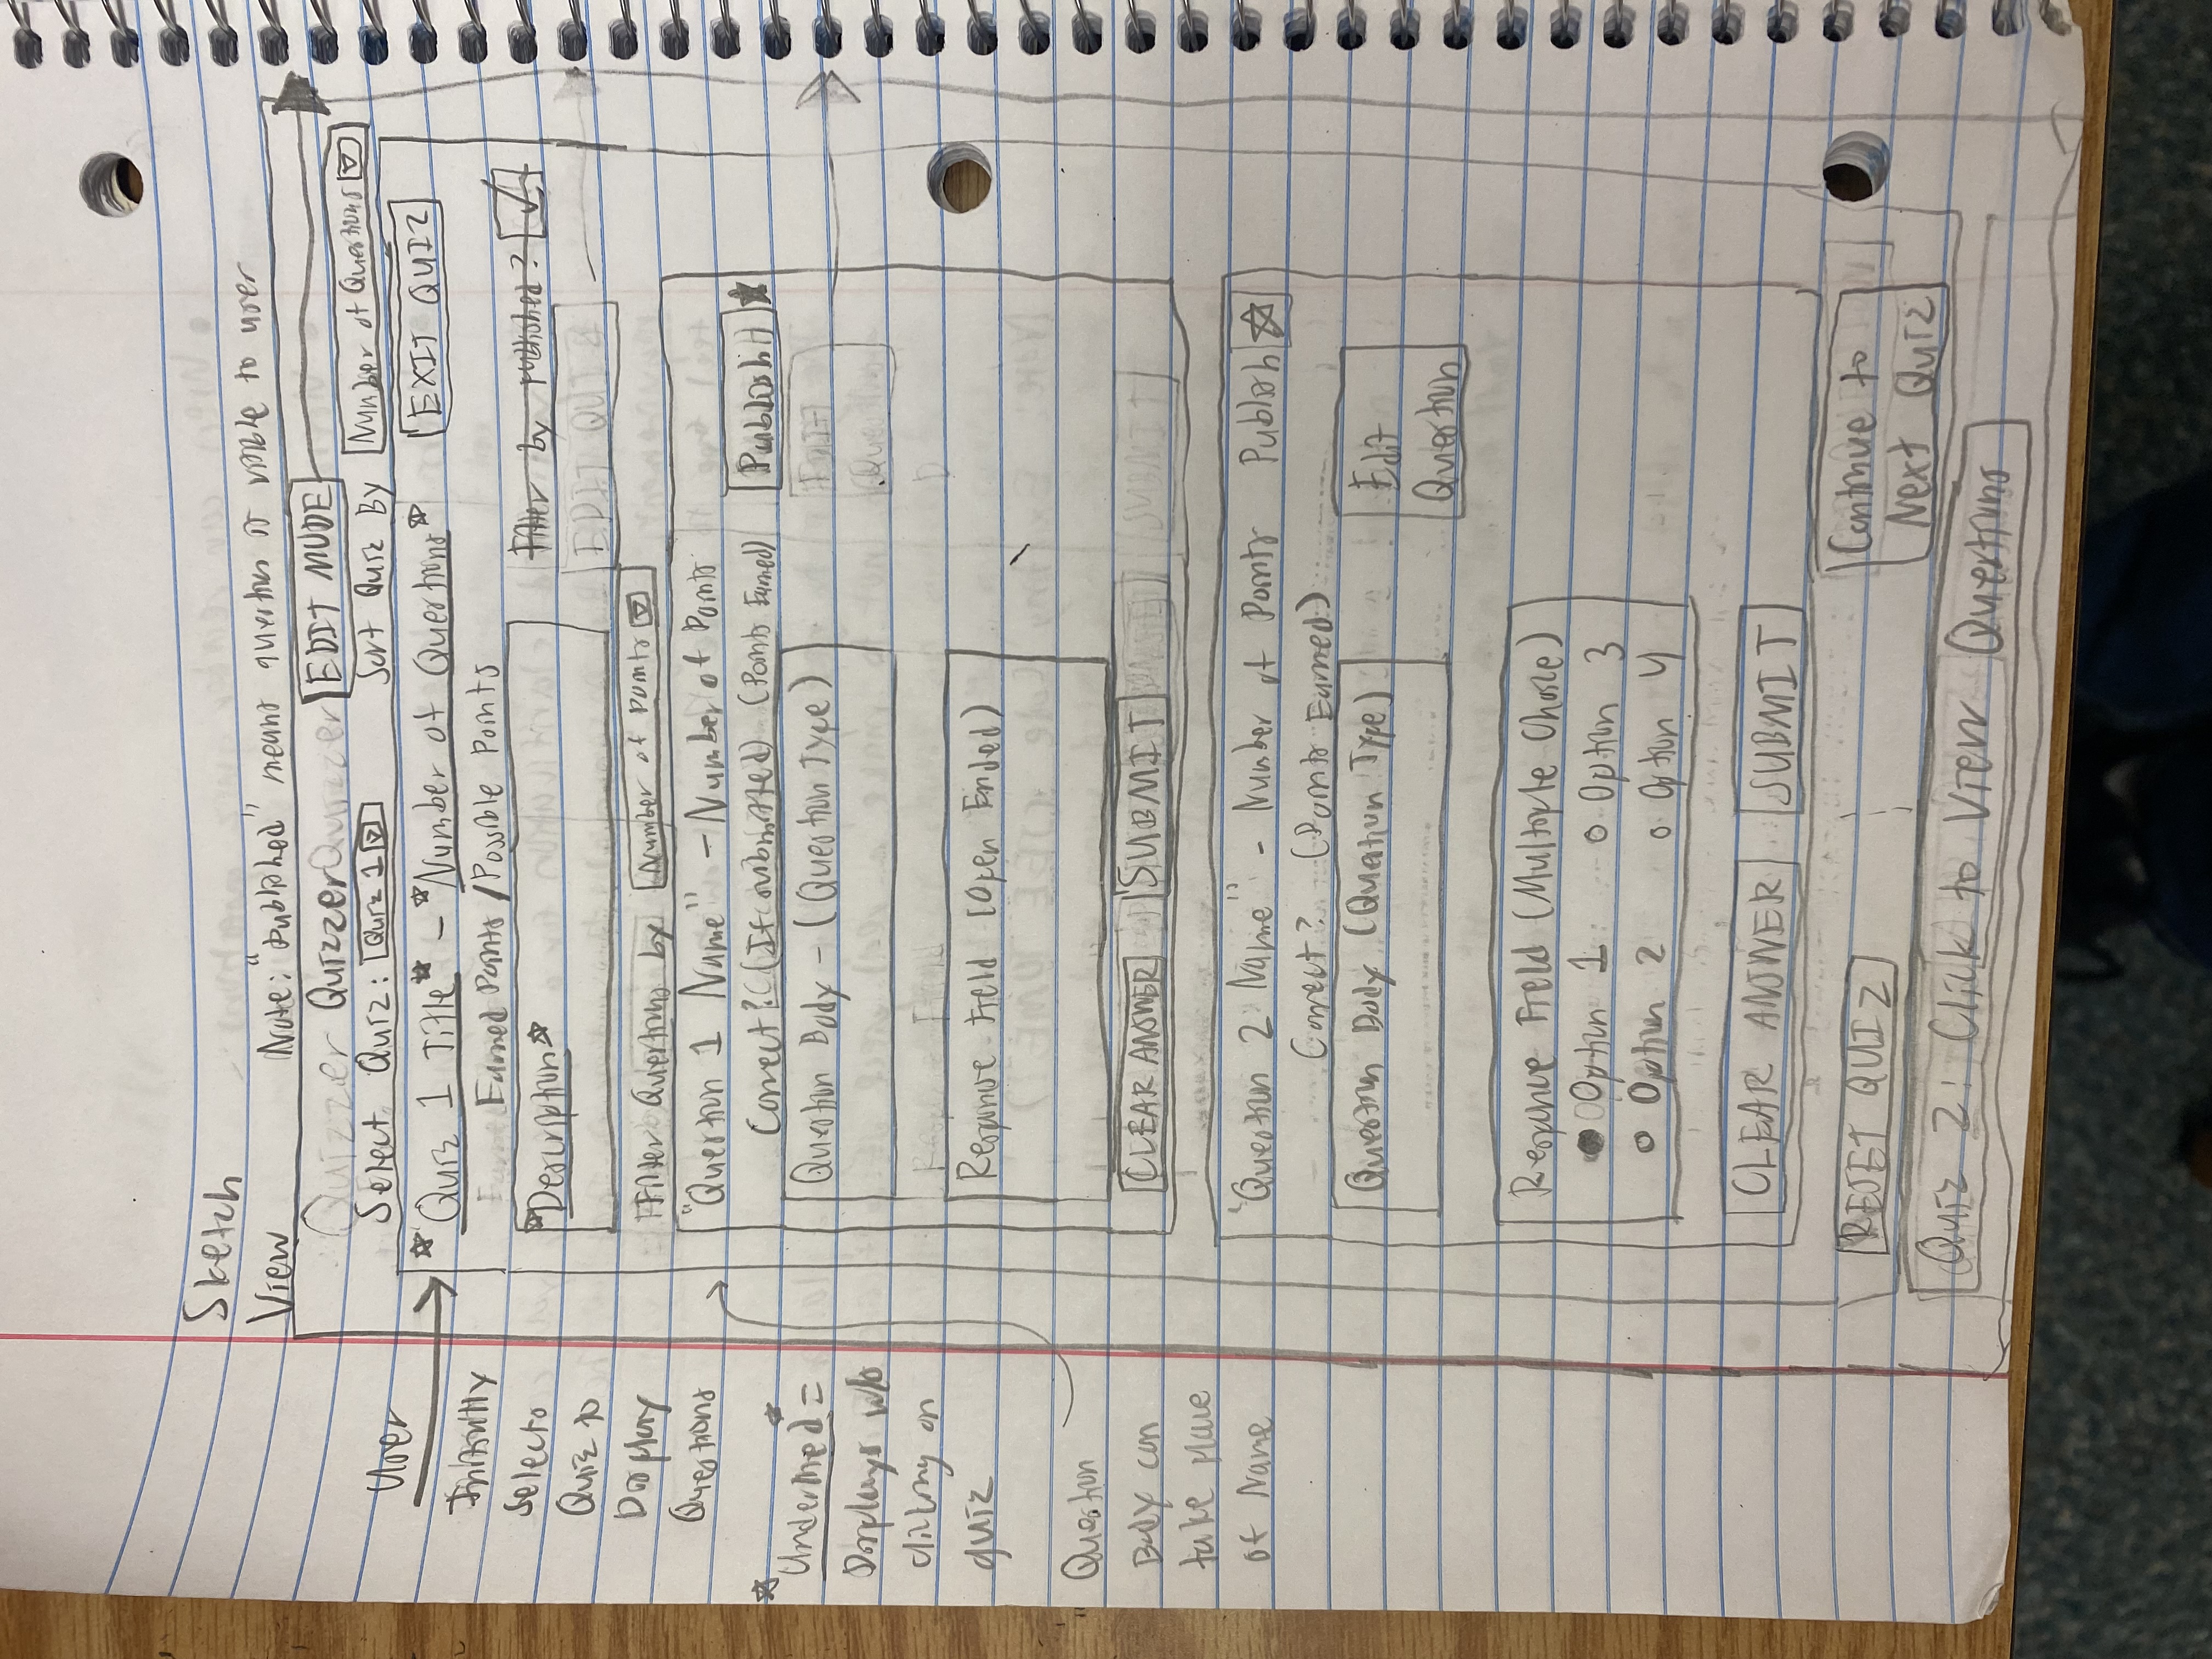 Sketch
View Note: "published" means question is visible to user
Quizzer EDIT MODE
Select Quiz: Quiz 1 Sort Quiz By Number of Questions
User
Initially
Selects
Quiz to
Display
Questions
Underlined =
Displays w/o
clicking on
quiz
Question
Body can
take place
of Name
Quiz 1 Title - Number of Questions EXIT QUIZ
Earned Points / Possible Points
Description Filter by published?
EDIT QUIZ
Filter Questions by Number of Points
"Question 1 Name" - Number of Points
Correct? (If submitted) (Points Earned) Publish
Question Body - (Question Type) EDIT
Question
Response Field (Open Ended)
CLEAR ANSWER SUBMIT
"Question 2 Name" - Number of Points Publish
Correct? (Points Earned)
Question Body (Question Type) Edit
Question
Response Field (Multiple Choice)
Option 1 Option 3
Option 2 Option 4
CLEAR ANSWER SUBMIT
RESET QUIZ Continue to
Next Quiz
Quiz 2: Click to View Questions